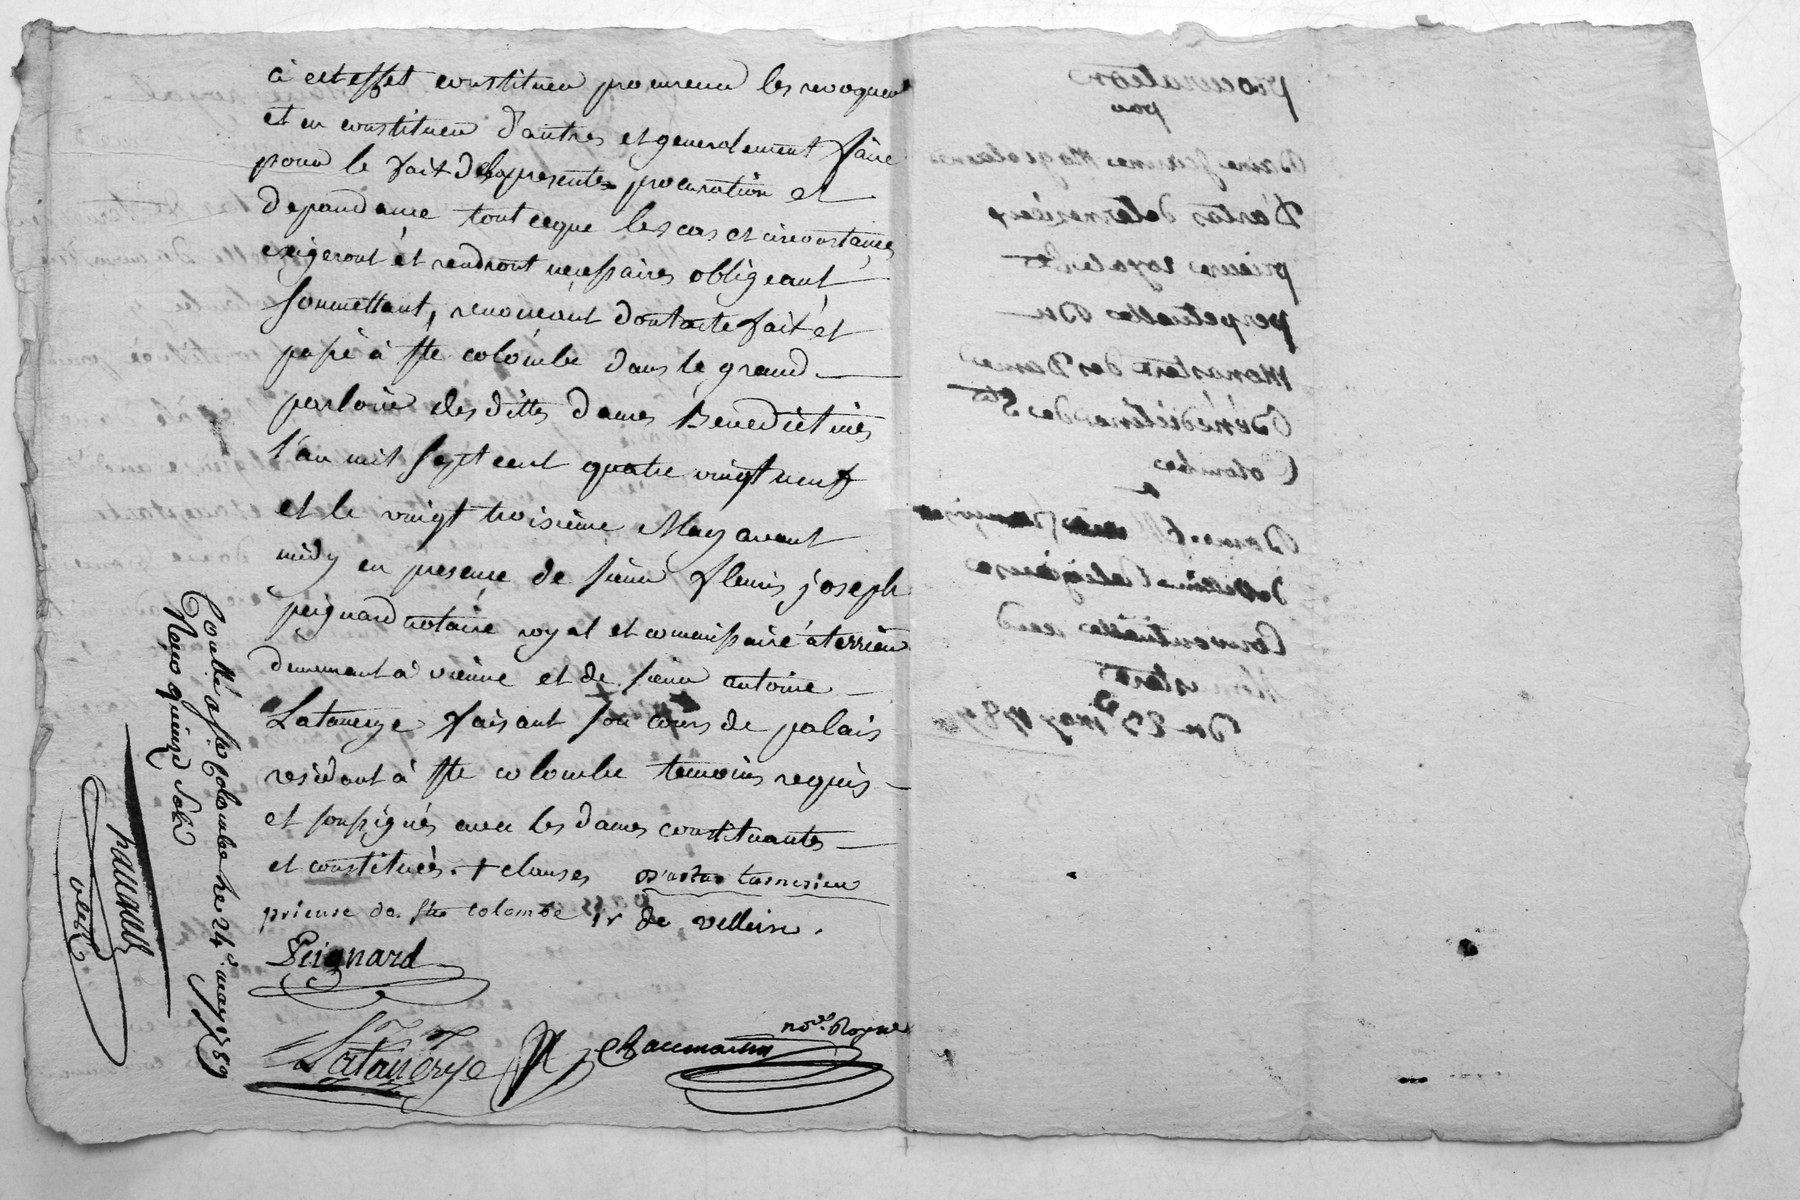 à cet effet constituer procureur les revoquer
et en constituer d'autres et generalement faire
pour le fait des presentes procuration et
dependance tout ceque les cas et circonstances
exigeront et rendront necessaires obligeant
soumettant, renonceant dont acte fait et
passé à Ste colombe dans le grand
parloir desdittes dames Benedictines
l'an mil sept cent quatre vingt neuf
et le vingt troisième May avant
midy en presence de sieur fleuris joseph
peignard notaire royal et commissaire à terrier
demeurant à vienne et de sieur antoine
Latanerye faisant son cours de palais
residant à Ste colombe temoins requis
et soussignés avec les dames constituantes
et constituées. + clauses D'artas
prieure de Ste colombe sr de vellein.
Peignard
Latanerye
not. Royal
Conllé à Ste Colombe le 24e. may 1789
Reçu quinze sols
procuration
pour
Dame
D'artas
prieure royale
perpetuelle du
Monastere des Dames
Bénédictines de Ste
Colombe
à
Dame
de Religieuse
Conventuelle aud
Monastere
Du 23 may 1789